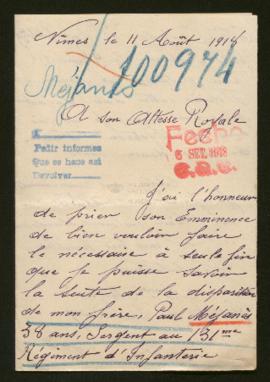 Nîmes le 11 Août 1918
Méjanès
100974
A son Altesse Royale
Fecha
6 SET. 1918
C.a.C.
A
Pedir informes
Que se hace así
Devolver
J'ai l'honneur
de prier son Emminence
de bien vouloir faire
le nécessaire à seule fin
que je puisse savoir
la suite de la disparition
de mon frère, Paul Méjanès
38 ans, Sergent au 131me
Régiment d'Infanterie